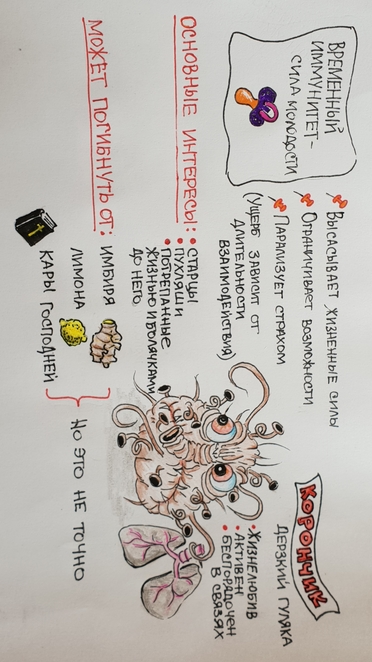 ВРЕМЕННЫЙ
ИММУНИТЕТ-
СИЛА МОЛОДОСТИ
ВЫСАСЫВАЕТ ЖИЗНЕННЫЕ СИЛЫ
ОГРАНИЧИВАЕТ ВОЗМОЖНОСТИ
ПАРАЛИЗУЕТ СТРАХОМ
(УЩЕРБ ЗАВИСИТ ОТ
ДЛИТЕЛЬНОСТИ
ВЗАИМОДЕЙСТВИЯ)
КОРОНЧИК
ДЕРЗКИЙ ГУЛЯКА
• ЖИЗНЕЛЮБИВ
• АКТИВЕН
• БЕСПОРЯДОЧЕН
В СВЯЗЯХ
ОСНОВНЫЕ ИНТЕРЕСЫ:
• СТАРЦЫ
• ПУХЛЯШИ
• ПОТРЕПАННЫЕ
ЖИЗНЬЮ И БОЛЯЧКАМИ
ДО НЕГО
МОЖЕТ ПОГИБНУТЬ ОТ:
ИМБИРЯ
ЛИМОНА
КАРЫ ГОСПОДНЕЙ
НО ЭТО НЕ ТОЧНО